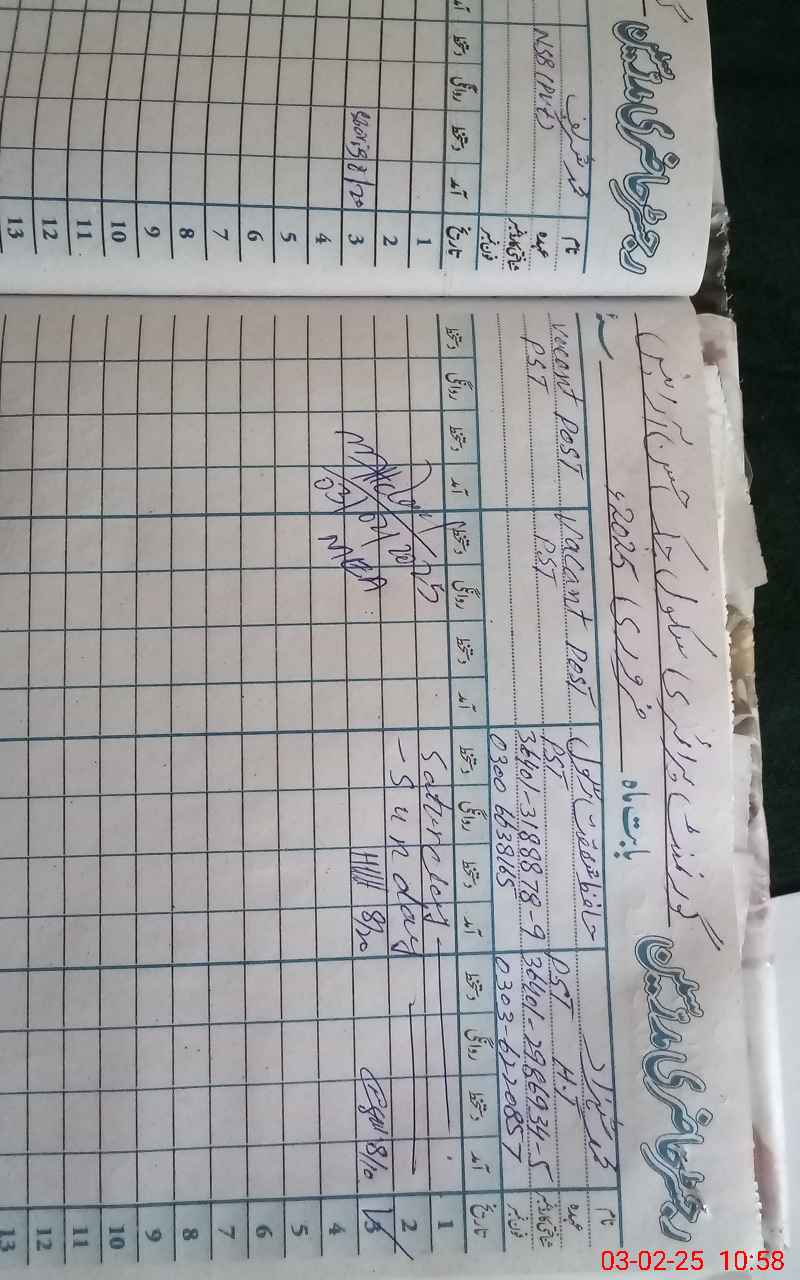 رجسٹر حاضری مدرسین
گورنمنٹ پرائمری سکول
بابت ماہ فروری 2025ء سنہ
نام
عہدہ
شناختی کارڈ نمبر
فون نمبر
تاریخ آمد دستخط روانگی دستخط آمد دستخط روانگی دستخط آمد دستخط روانگی دستخط آمد دستخط روانگی دستخط
محمد شہزاد
PST H.T
36401-2986934-5
0303-6220857
PST
36401-3188878-9
0300 6638165
Vacant Post
PST
Vacant Post
PST
1 Saturday
2 Sunday
3 8/20
4
5
6
7
8
9
10
11
12
13
03/02
MEA
رجسٹر حاضری مدرسین
نام
عہدہ NSB (Pvt)
شناختی کارڈ نمبر
فون نمبر
تاریخ آمد دستخط روانگی دستخط آمد
1
2
3 8/20
4
5
6
7
8
9
10
11
12
13
03-02-25 10:58